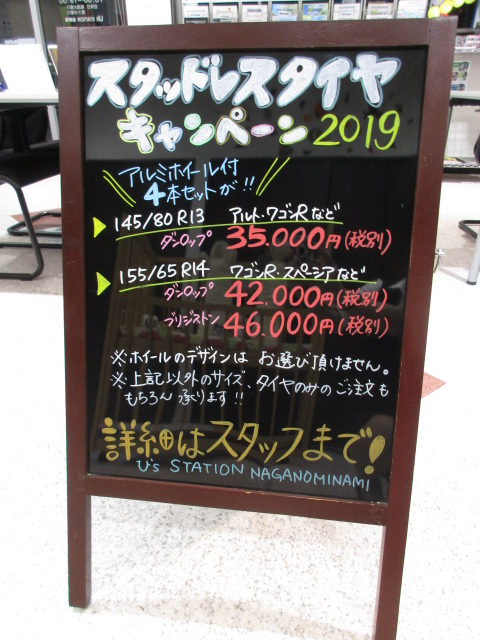 スタッドレスタイヤ
キャンペーン 2019
アルミホイール付
4本セットが!!
145/80 R13 アルト・ワゴンRなど
ダンロップ 35.000円(税別)
155/65 R14 ワゴンR・スペーシアなど
ダンロップ 42.000円(税別)
ブリジストン 46.000円(税別)
※ホイールのデザインは お選び頂けません。
※上記以外のサイズ、タイヤのみのご注文も
もちろん承ります!!
詳細はスタッフまで!
U's STATION NAGANOMINAMI